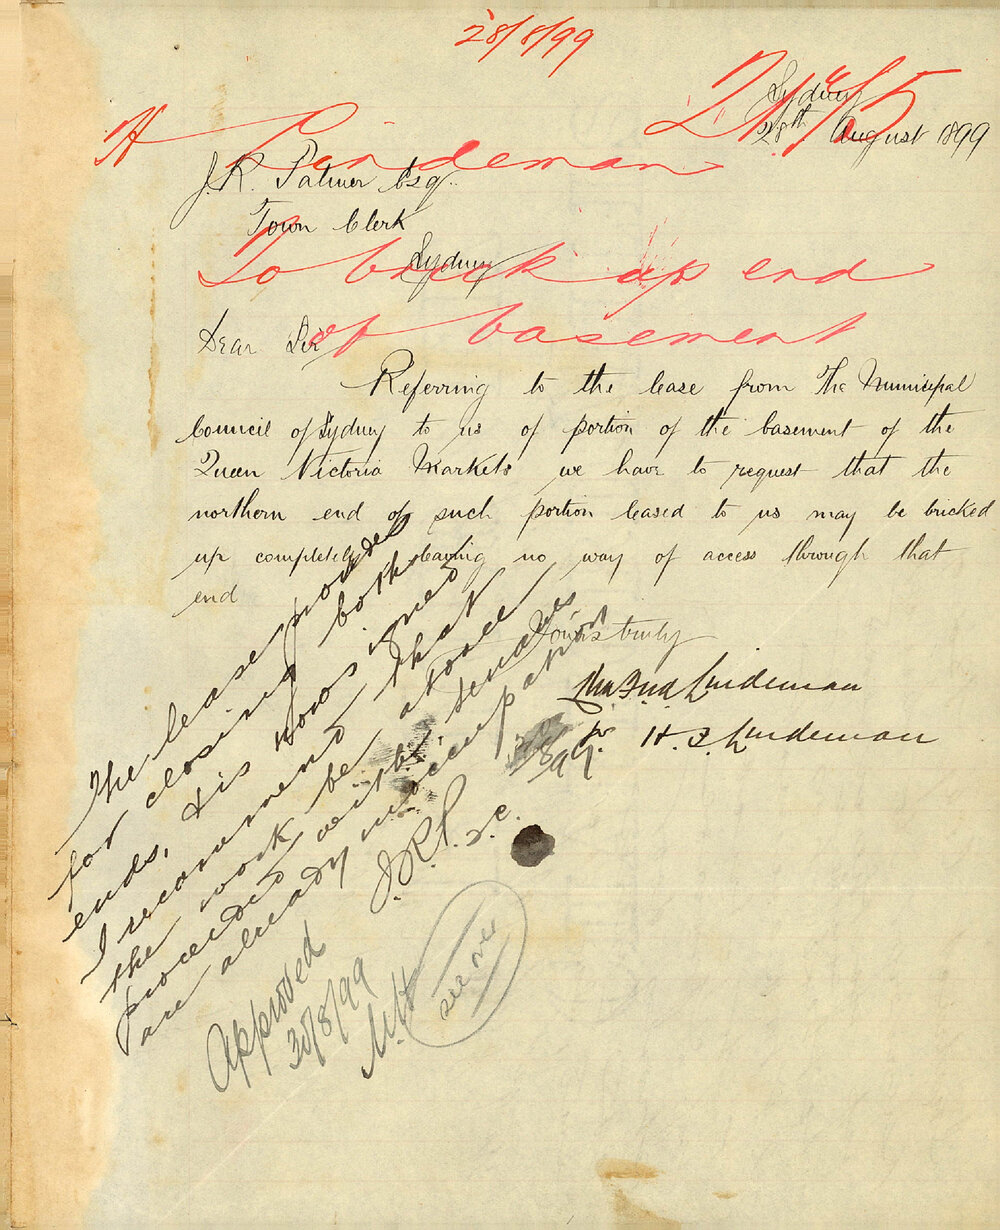 28/8/99
Sydney
28th August 1899
H Lindeman
J. R. Palmer Esq.
Town Clerk
Sydney
To brick up end
of basement
Dear Sir
Referring to the lease from The Municipal
Council of Sydney to us of portion of the basement of the
Queen Victoria Markets we have to request that the
northern end of such portion leased to us may be bricked
up completely leaving no way of access through that
end
Yours truly
Chas Fred Lindeman
pr H. J. Lindeman
The lease provides
for closing both
ends, & is now signed
I recommend that
the work be at once
proceeded with, tenants
are already in occupation
J.R.P. T.C.
28/8/99
Approved
30/8/99
see over